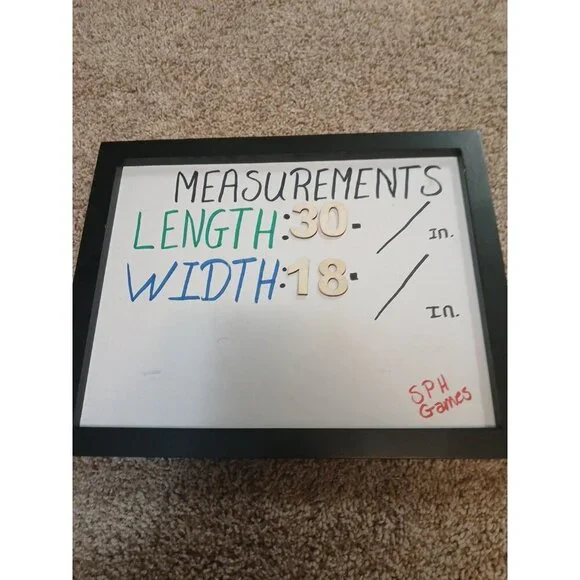 MEASUREMENTS
LENGTH:30. / In.
WIDTH:18. / In.
SPH
Games